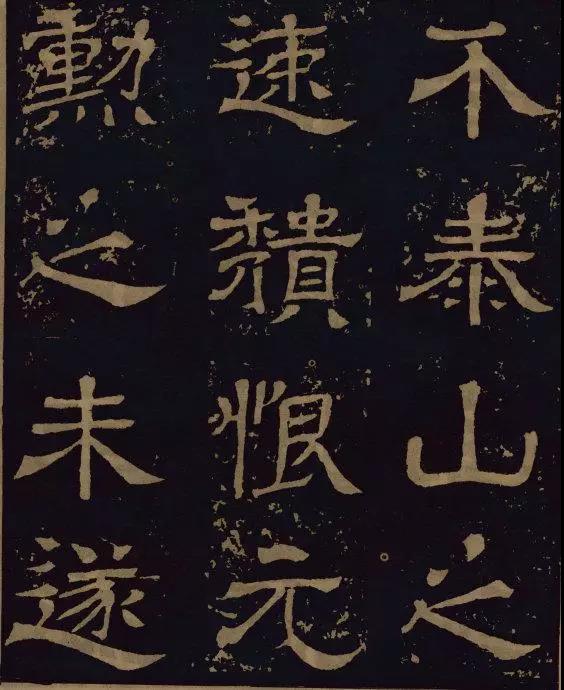 不泰山之
速穨恨元
勳之未遂